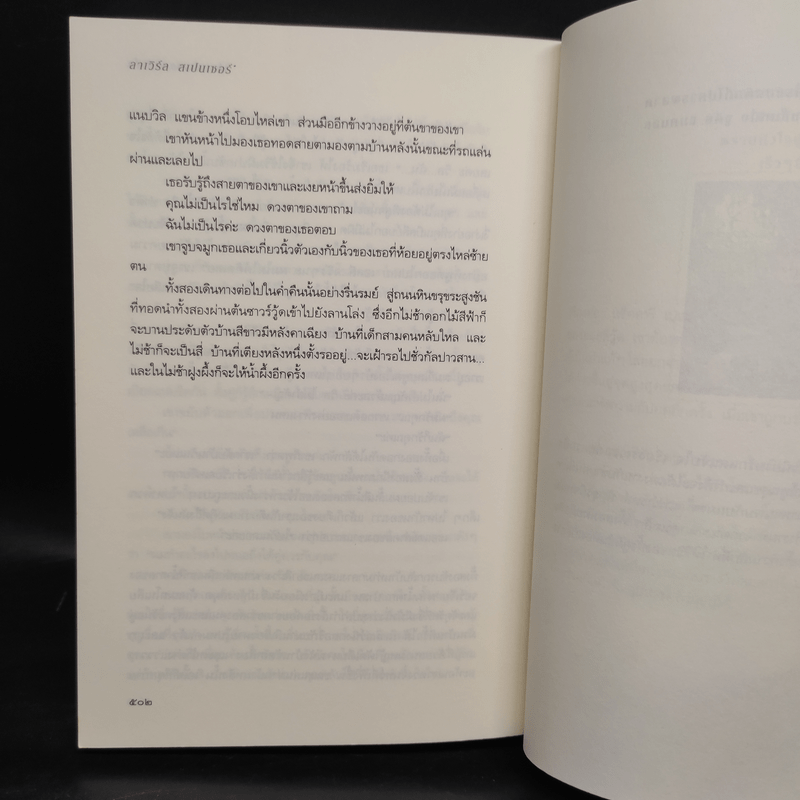 ลาเวิร์ล สเปนเซอร์
แนบวิล แขนข้างหนึ่งโอบไหล่เขา ส่วนมืออีกข้างวางอยู่ที่ต้นขาของเขา
เขาหันหน้าไปมองเธอทอดสายตามองตามบ้านหลังนั้นขณะที่รถแล่น
ผ่านและเลยไป
เธอรับรู้ถึงสายตาของเขาและเงยหน้าขึ้นส่งยิ้มให้
คุณไม่เป็นไรใช่ไหม ดวงตาของเขาถาม
ฉันไม่เป็นไรค่ะ ดวงตาของเธอตอบ
เขาจูบจมูกเธอและเกี่ยวนิ้วตัวเองกับนิ้วของเธอที่ห้อยอยู่ตรงไหล่ซ้าย
ตน
ทั้งสองเดินทางต่อไปในค่ำคืนนั้นอย่างรื่นรมย์ สู่ถนนหินขรุขระสูงชัน
ที่ทอดนำทั้งสองผ่านต้นซาวร์วู้ดเข้าไปยังลานโล่ง ซึ่งอีกไม่ช้าดอกไม้สีฟ้าก็
จะบานประดับตัวบ้านสีขาวมีหลังคาเฉียง บ้านที่เด็กสามคนหลับใหล และ
ไม่ช้าก็จะเป็นสี่ บ้านที่เตียงหลังหนึ่งตั้งรออยู่...จะเฝ้ารอไปชั่วกัลปาวสาน...
และในไม่ช้าฝูงผึ้งก็จะให้น้ำผึ้งอีกครั้ง
๕๐๒